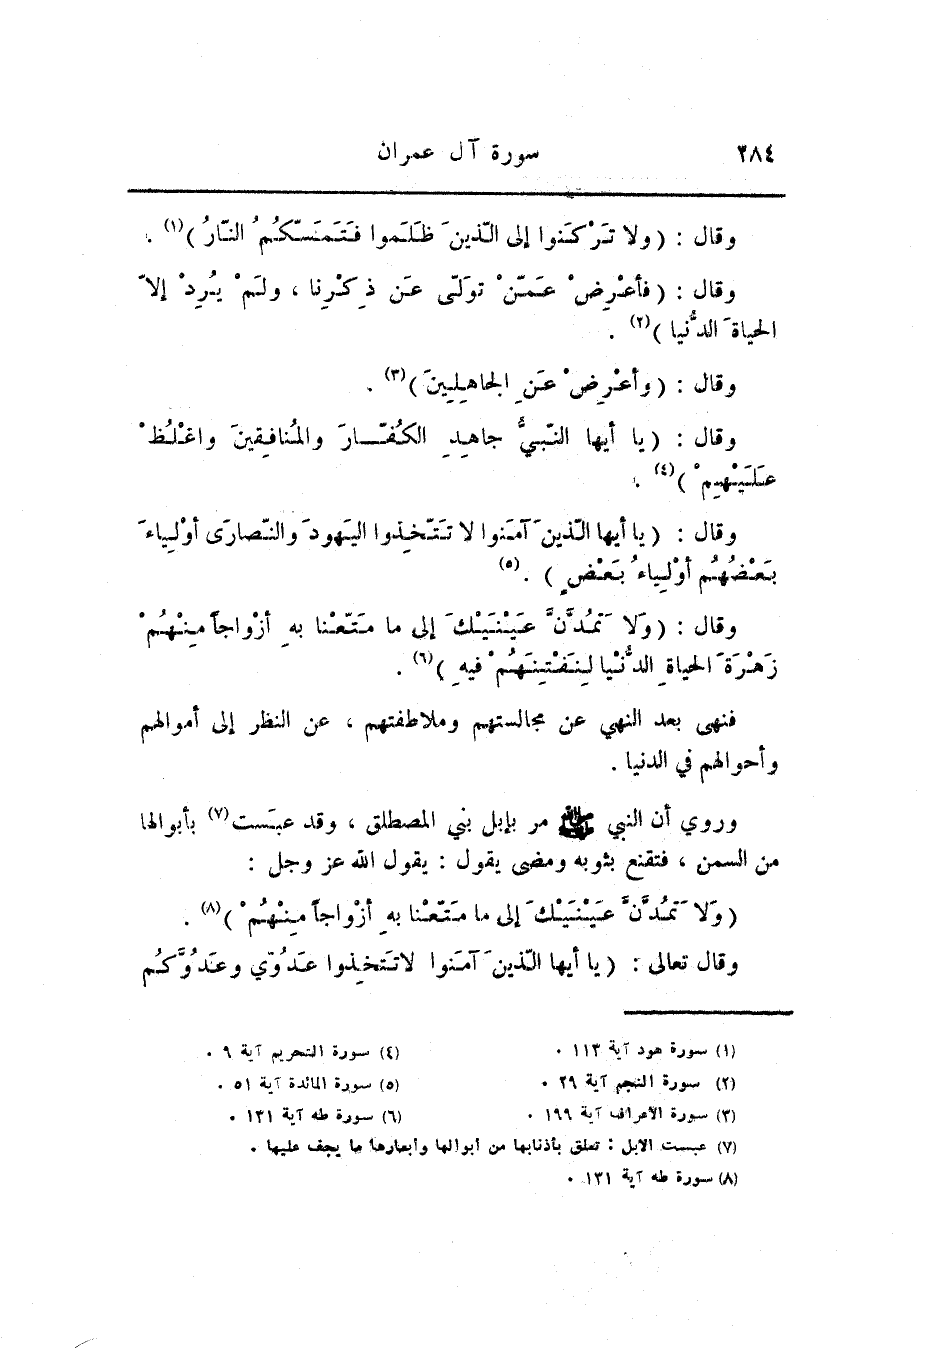 ٢٨٤ سورة آل عمران
وقال : ( ولا تَرْكَنوا إلى الّذينَ ظَلَموا فَتَمَسّكُمُ النّارُ )(١) .
وقال : ( فأعْرِضْ عَمّنْ توَلّى عَن ذِكْرِنا ، ولَمْ يُرِدْ إلاّ
الحياةَ الدُّنيا )(٢) .
وقال : ( وأعْرِضْ عَنِ الجاهِلِينَ )(٣) .
وقال : ( يا أيها النّبيُّ جاهِدِ الكُفّارَ والمُنافِقينَ واغْلُظْ
عَلَيْهِمْ )(٤) .
وقال : ( يا أيها الّذينَ آمَنوا لا تَتّخِذوا اليَهودَ والنّصارَى أوْلِياءَ
بَعْضُهُم أوْلِياءُ بَعْضٍ ) .(٥)
وقال : ( وَلا تَمُدَّنَّ عَيْنَيْكَ إلى ما مَتّعْنا بهِ أزْواجاً مِنْهُمْ
زَهْرَةَ الحياةِ الدُّنْيا لِنَفْتِنَهُمْ فيهِ )(٦) .
فنهى بعد النهي عن مجالستهم وملاطفتهم ، عن النظر إلى أموالهم
وأحوالهم في الدنيا .
وروي أن النبي ﷺ مر بإبل بني المصطلق ، وقد عبَست(٧) بأبوالها
من السمن ، فتقنع بثوبه ومضى يقول : يقول الله عز وجل :
( وَلا تَمُدَّنَّ عَيْنَيْكَ إلى ما مَتّعْنا بهِ أزْواجاً مِنْهُمْ )(٨) .
وقال تعالى : ( يا أيها الّذينَ آمَنوا لاتَتخِذوا عَدُوّي وعَدُوَّكُم
(١) سورة هود آية ١١٣ .
(٢) سورة النجم آية ٢٩ .
(٣) سورة الأعراف آية ١٩٩ .
(٤) سورة التحريم آية ٩ .
(٥) سورة المائدة آية ٥١ .
(٦) سورة طه آية ١٣١ .
(٧) عبست الابل : تعلق بأذنابها من أبوالها وأبعارها ما يجف عليها .
(٨) سورة طه آية ١٣١ .